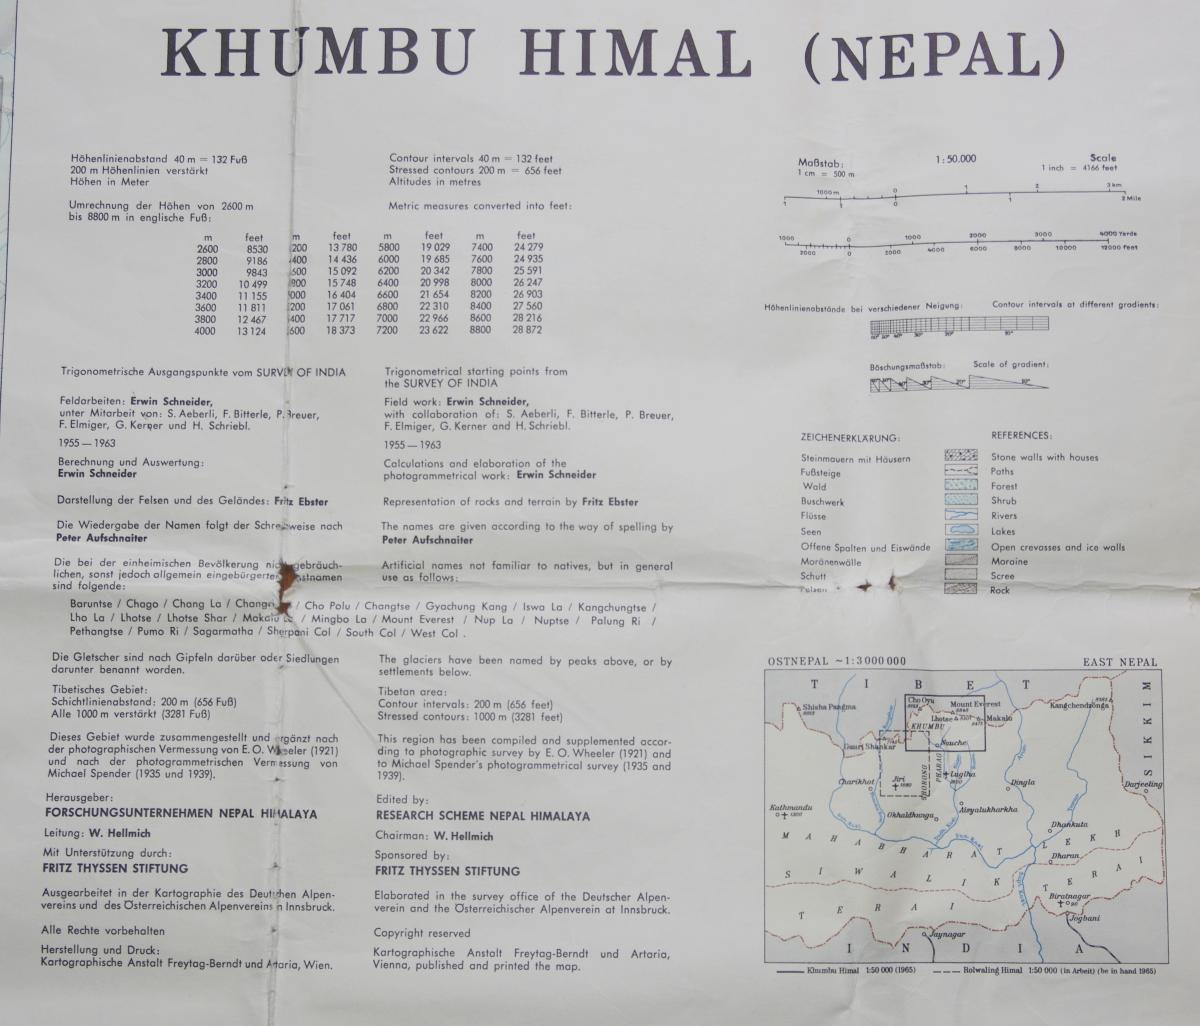 KHUMBU HIMAL (NEPAL)
Höhenlinienabstand 40 m = 132 Fuß
200 m Höhenlinien verstärkt
Höhen in Meter
Umrechnung der Höhen von 2600 m
bis 8800 m in englische Fuß:
Contour intervals 40 m = 132 feet
Stressed contours 200 m = 656 feet
Altitudes in metres
Metric measures converted into feet:
m feet m feet m feet m feet
2600 8530 200 13 780 5800 19 029 7400 24 279
2800 9186 400 14 436 6000 19 685 7600 24 935
3000 9843 600 15 092 6200 20 342 7800 25 591
3200 10 499 800 15 748 6400 20 998 8000 26 247
3400 11 155 000 16 404 6600 21 654 8200 26 903
3600 11 811 200 17 061 6800 22 310 8400 27 560
3800 12 467 400 17 717 7000 22 966 8600 28 216
4000 13 124 600 18 373 7200 23 622 8800 28 872
Trigonometrische Ausgangspunkte vom SURVEY OF INDIA
Feldarbeiten: Erwin Schneider,
unter Mitarbeit von: S. Aeberli, F. Bitterle, P. Breuer,
F. Elmiger, G. Kerner und H. Schriebl.
1955 — 1963
Berechnung und Auswertung:
Erwin Schneider
Darstellung der Felsen und des Geländes: Fritz Ebster
Die Wiedergabe der Namen folgt der Schreibweise nach
Peter Aufschnaiter
Die bei der einheimischen Bevölkerung nicht gebräuch-
lichen, sonst jedoch allgemein eingebürgerten stnamen
sind folgende:
Trigonometrical starting points from
the SURVEY OF INDIA
Field work: Erwin Schneider,
with collaboration of: S. Aeberli, F. Bitterle, P. Breuer,
F. Elmiger, G. Kerner and H. Schriebl.
1955 — 1963
Calculations and elaboration of the
photogrammetrical work: Erwin Schneider
Representation of rocks and terrain by Fritz Ebster
The names are given according to the way of spelling by
Peter Aufschnaiter
Artificial names not familiar to natives, but in general
use as follows:
Baruntse / Chago / Chang La / Chang / Cho Polu / Changtse / Gyachung Kang / Iswa La / Kangchungtse /
Lho La / Lhotse / Lhotse Shar / Makalu / Mingbo La / Mount Everest / Nup La / Nuptse / Palung Ri /
Pethangtse / Pumo Ri / Sagarmatha / Sherpani Col / South Col / West Col .
Die Gletscher sind nach Gipfeln darüber oder Siedlungen
darunter benannt worden.
Tibetisches Gebiet:
Schichtlinienabstand: 200 m (656 Fuß)
Alle 1000 m verstärkt (3281 Fuß)
Dieses Gebiet wurde zusammengestellt und ergänzt nach
der photographischen Vermessung von E. O. Wheeler (1921)
und nach der photogrammetrischen Vermessung von
Michael Spender (1935 und 1939).
Herausgeber:
FORSCHUNGSUNTERNEHMEN NEPAL HIMALAYA
Leitung: W. Hellmich
Mit Unterstützung durch:
FRITZ THYSSEN STIFTUNG
Ausgearbeitet in der Kartographie des Deutschen Alpen-
vereins und des Österreichischen Alpenvereins in Innsbruck.
Alle Rechte vorbehalten
Herstellung und Druck:
Kartographische Anstalt Freytag-Berndt und Artaria, Wien.
The glaciers have been named by peaks above, or by
settlements below.
Tibetan area:
Contour intervals: 200 m (656 feet)
Stressed contours: 1000 m (3281 feet)
This region has been compiled and supplemented accor-
ding to photographic survey by E. O. Wheeler (1921) and
to Michael Spender's photogrammetrical survey (1935 and
1939).
Edited by:
RESEARCH SCHEME NEPAL HIMALAYA
Chairman: W. Hellmich
Sponsored by:
FRITZ THYSSEN STIFTUNG
Elaborated in the survey office of the Deutscher Alpen-
verein and the Österreichischer Alpenverein at Innsbruck.
Copyright reserved
Kartographische Anstalt Freytag-Berndt und Artaria,
Vienna, published and printed the map.
Maßstab: 1 : 50.000 Scale
1 cm = 500 m 1 inch = 4166 feet
1000 m 0 1 2 3 km
1 0 1 2 Mile
1000 0 1000 2000 3000 4000 Yards
2000 0 2000 4000 6000 8000 10000 12000 Feet
Höhenlinienabstände bei verschiedener Neigung: Contour intervals at different gradients:
Böschungsmaßstab: Scale of gradient:
ZEICHENERKLÄRUNG: REFERENCES:
Steinmauern mit Häusern Stone walls with houses
Fußsteige Paths
Wald Forest
Buschwerk Shrub
Flüsse Rivers
Seen Lakes
Offene Spalten und Eiswände Open crevasses and ice walls
Moränenwälle Moraine
Schutt Scree
Rock
OSTNEPAL ~1:3 000 000 EAST NEPAL
T I B E T
SIKKIM
Shisha Pangma
Cho Oyu
Mount Everest
Lhotse
Makalu
Kangchendzönga
KHUMBU
Gauri Shankar
Namche
PHARAK
SHORONG
Charikhot
Jiri
Luglha
Dingla
Darjeeling
Kathmandu
Okhaldhunga
Aisyalukharkha
Dhankuta
Dharan
MAHABHARAT LEKH
SIWALIK
TERAI
TERAI
Biratnagar
Jogbani
Jaynagar
I N D I A
Khumbu Himal 1:50 000 (1965) Rolwaling Himal 1:50 000 (in Arbeit) (be in hand 1965)